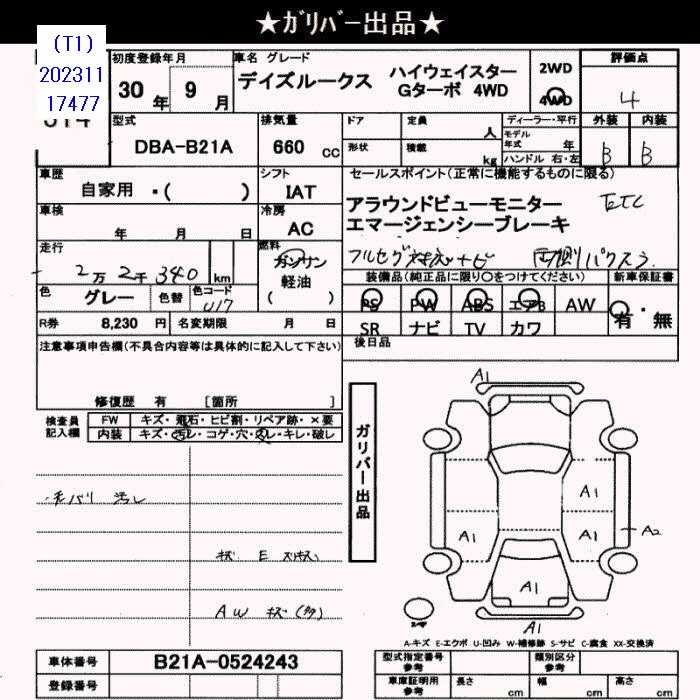 ★ｶﾞﾘﾊﾞｰ出品★
(T1)
202311
17477
初度登録年月
30年 9月
車名 グレード
デイズルークス ハイウェイスター
Gターボ 4WD
2WD
4WD
評価点
4
型式
DBA-B21A
排気量
660 cc
ドア
定員 人
形状
積載 kg
ディーラー・平行
モデル年式 年
ハンドル 右・左
外装 内装
B B
車歴
自家用 ・( )
シフト
IAT
セールスポイント(正常に機能するものに限る)
アラウンドビューモニター ETC
エマージェンシーブレーキ
車検 年 月 日
冷房
AC
走行
2万2千340 km
燃料
ガソリン
軽油
( )
装備品(純正品に限り○をつけてください)
新車保証書
色
グレー
色替
色コード
PS PW ABS エアB AW
SR ナビ TV カワ
有・無
R券 8,230 円
名変期限 月 日
後日品
注意事項申告欄(不具合内容等は具体的に記入して下さい)
修復歴 有 [箇所 ]
検査員
記入欄
FW キズ・飛石・ヒビ割・リペア跡・×要
内装 キズ・汚レ・コゲ・穴・スレ・キレ・破レ
ガリバー出品
A1
A1
A1
A1
A2
A1
A1
汚レ
キズ E
AW キズ(多)
A-キズ E-エクボ U-凹み W-補修跡 S-サビ C-腐食 XX-交換済
車体番号 B21A-0524243
登録番号
型式指定番号
参考
類別区分
参考
車庫証明用
参考
長さ cm
幅 cm
高さ cm